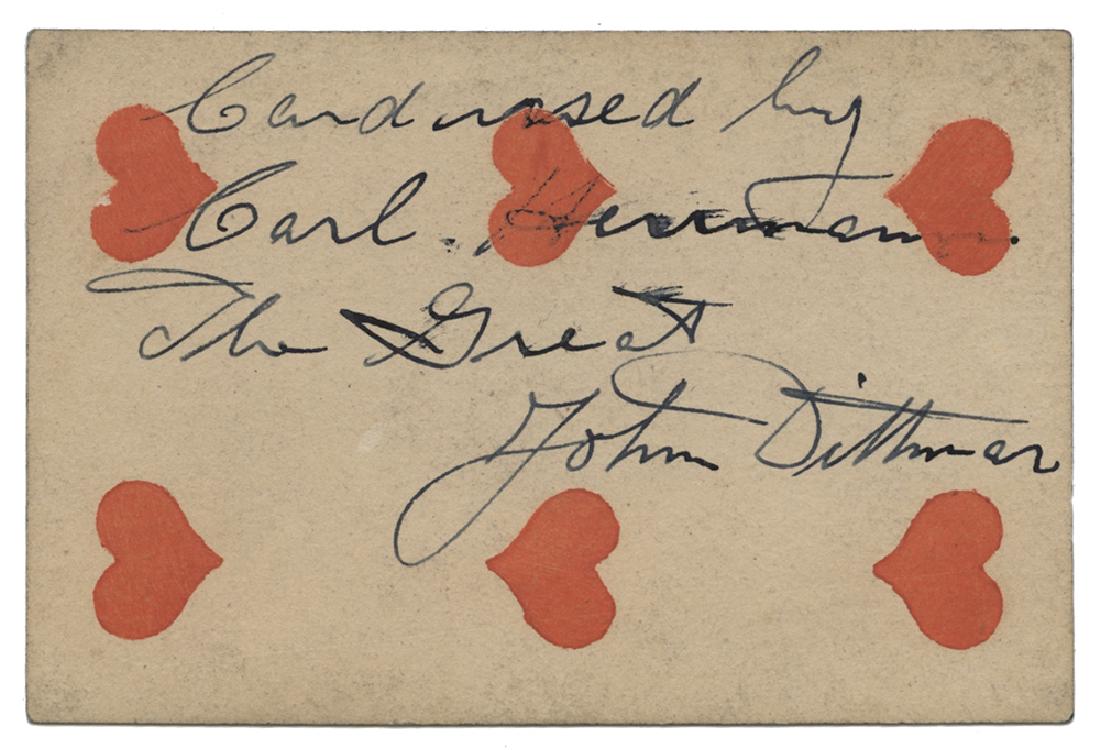 Card used by
Carl. Herrmann.
The Great
John Dittmar